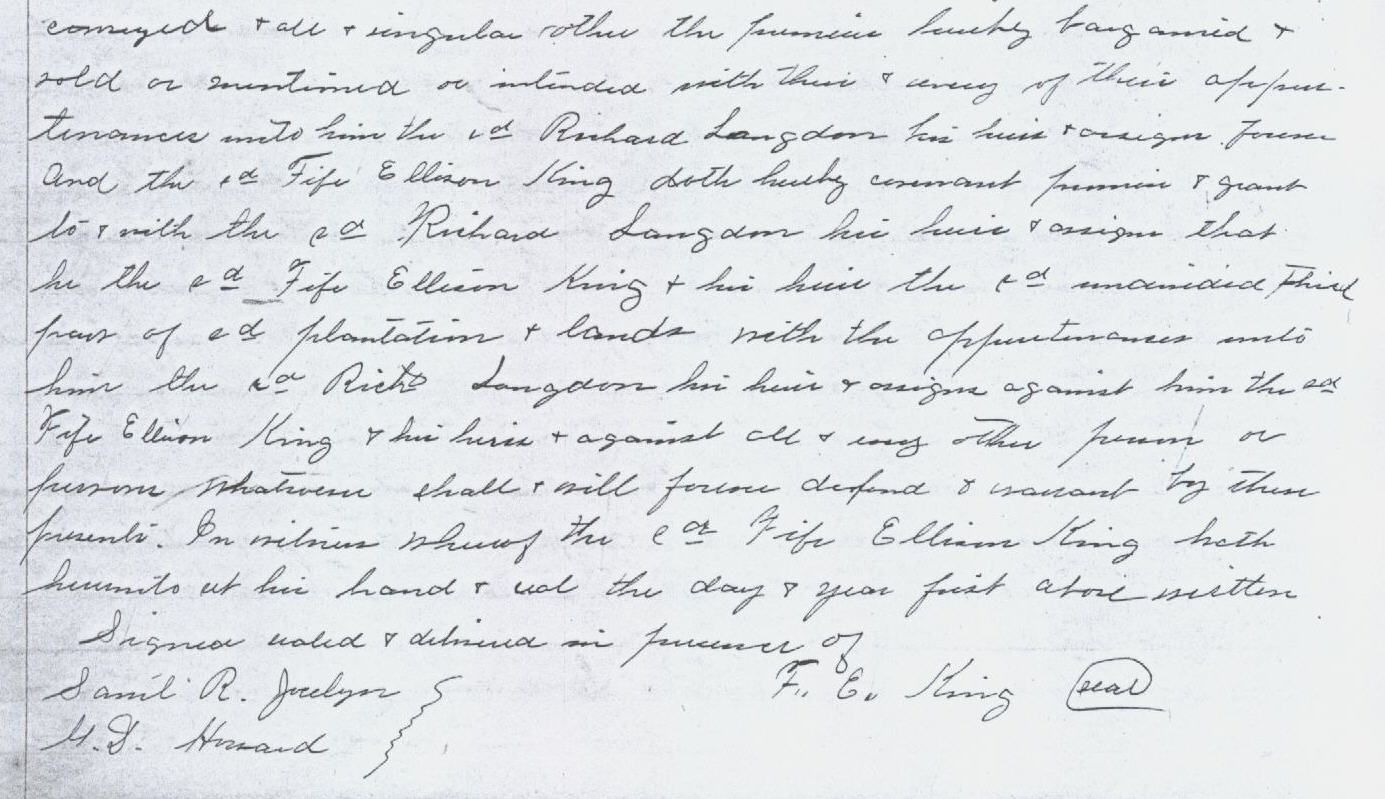 conveyed & all & singular other the premises hereby bargained &
sold or mentioned or intended with their & every of their appur-
tenances unto him the sd Richard Langdon his heirs & assigns forever
And the sd Fife Ellison King doth hereby covenant promise & grant
to & with the sd Richard Langdon his heirs & assigns that
he the sd Fife Ellison King & his heirs the sd undivided Third
part of sd plantation & lands with the appurtenances unto
him the sd Richd Langdon his heirs & assigns against him the sd
Fife Ellison King & his heirs & against all & every other person or
persons whatsoever shall & will forever defend & warrant by these
presents. In witness whereof the sd Fife Ellison King hath
hereunto set his hand & seal the day & year first above written
Signed sealed & delivered in presence of
Saml R. Jocelyn
F. E. King (seal)
D. Howard